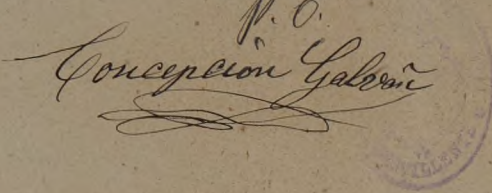 P. O.
Concepción Galvañ